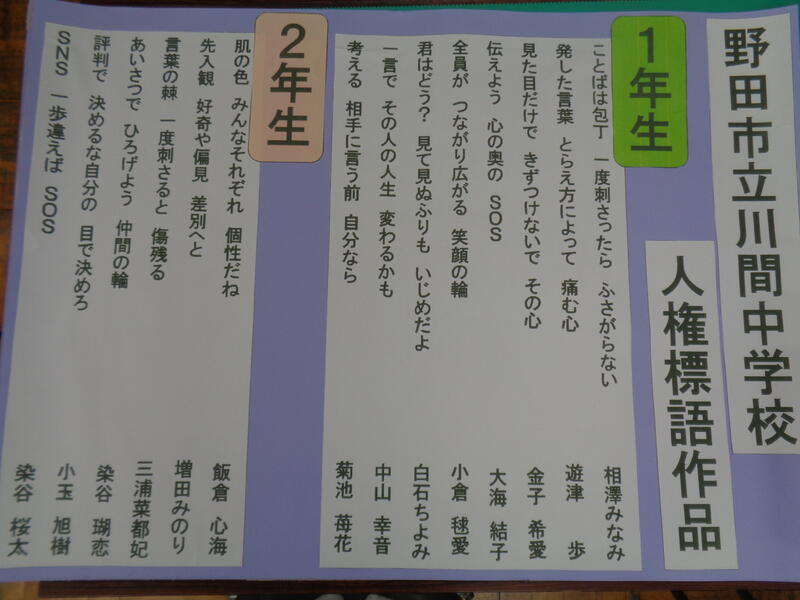 野田市立川間中学校
人権標語作品
1年生
ことばは包丁 一度刺さったら ふさがらない 相澤みなみ
発した言葉 とらえ方によって 痛む心 遊津 歩
見た目だけで きずつけないで その心 金子 希愛
伝えよう 心の奥の SOS 大海 結子
全員が つながり広がる 笑顔の輪 小倉 毬愛
君はどう? 見て見ぬふりも いじめだよ 白石ちよみ
一言で その人の人生 変わるかも 中山 幸音
考える 相手に言う前 自分なら 菊池 苺花
2年生
肌の色 みんなそれぞれ 個性だね 飯倉 心海
先入観 好奇や偏見 差別へと 増田みのり
言葉の棘 一度刺さると 傷残る 三浦菜都妃
あいさつで ひろげよう 仲間の輪 染谷 瑚恋
評判で 決めるな自分の 目で決めろ 小玉 旭樹
SNS 一歩違えば SOS 染谷 桜太